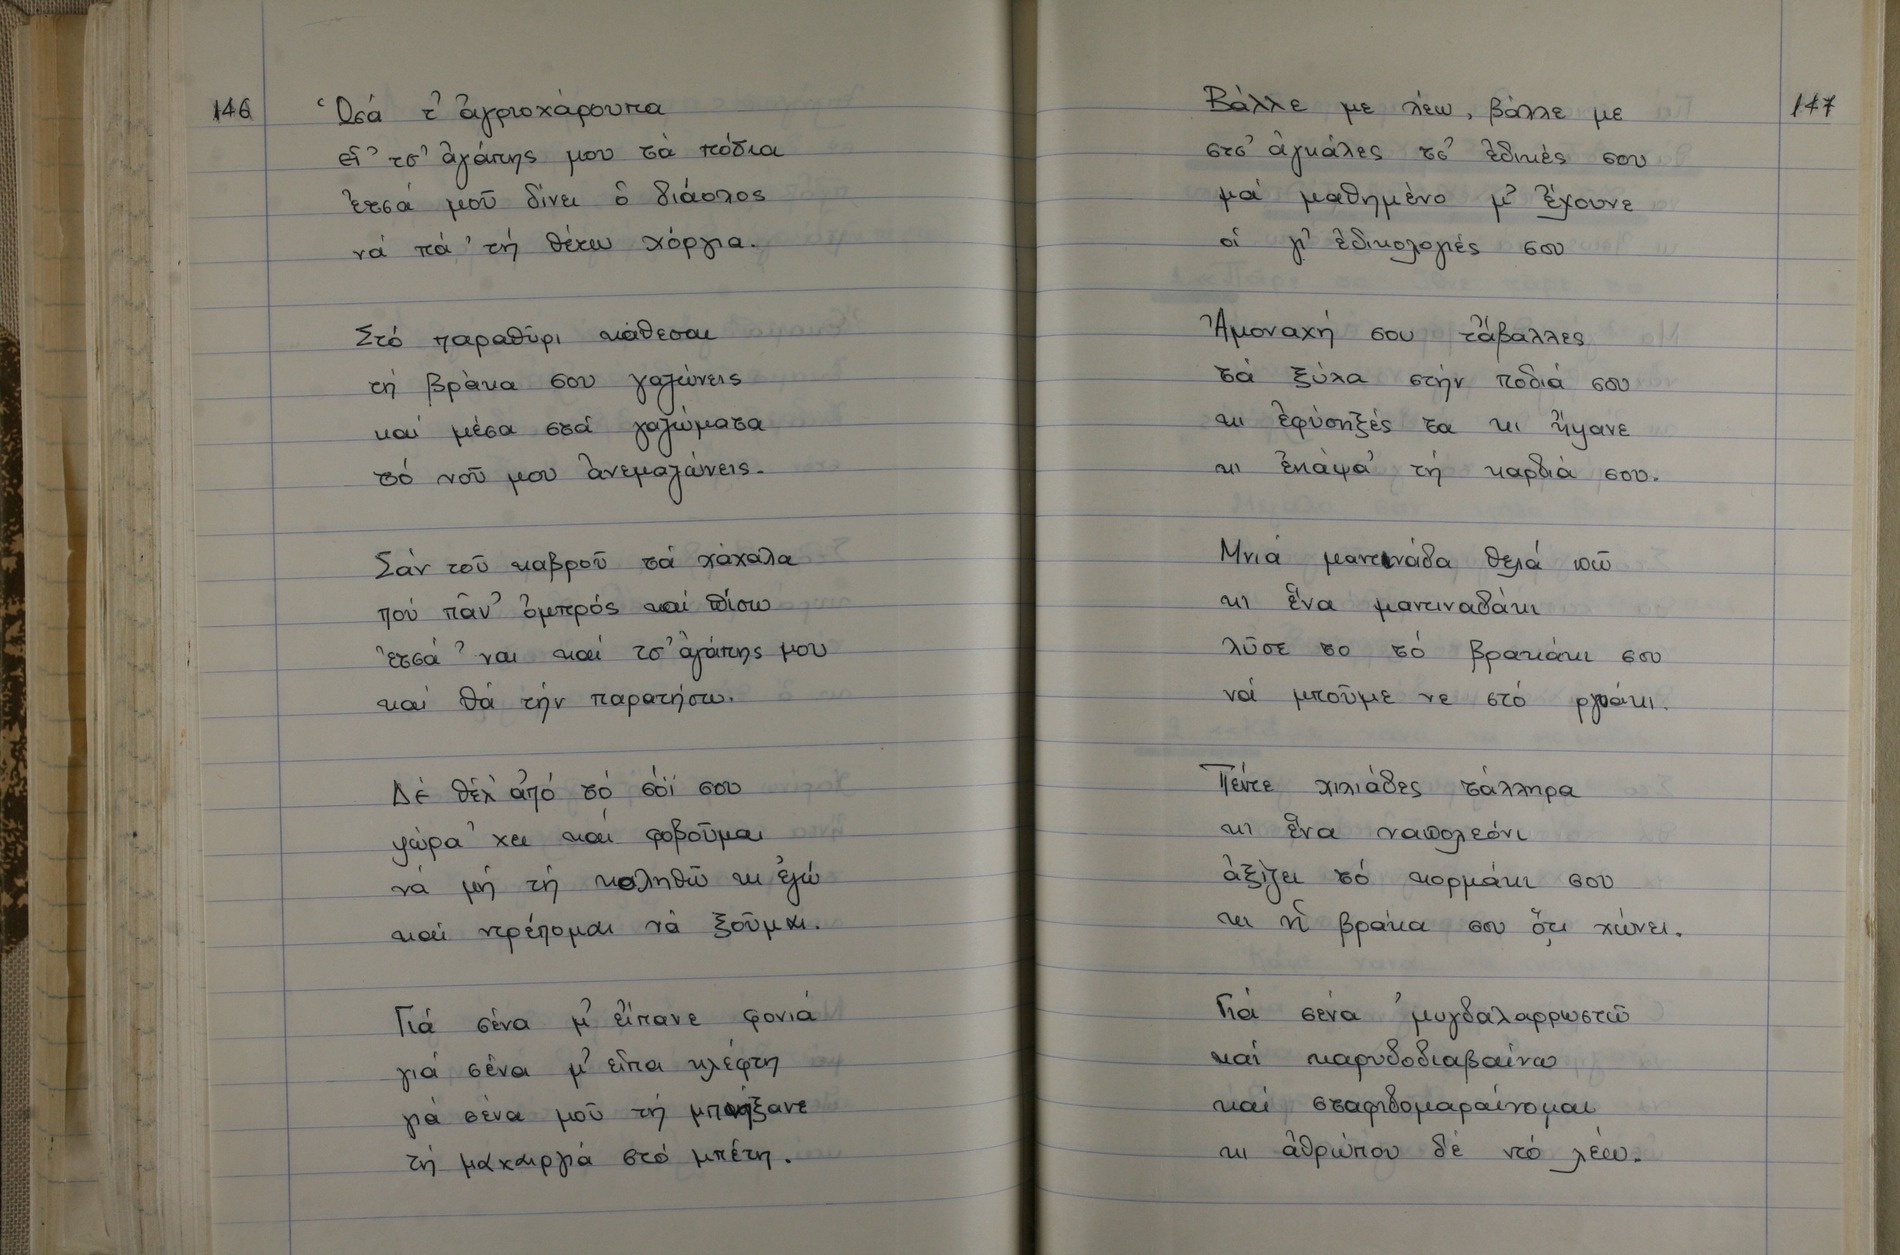 146
Ὡσά τ' ἀγριοχάρουπα
εἶ' τσ' ἀγάπης μου τὰ πόδια
ἐτσά μοῦ δίνει ὁ διάολος
νά πά' τή θέτω χόργια.
Στό παραθῦρι κάθεσαι
τή βράκα σου γαζώνεις
καί μέσα στά γαζώματα
τό νοῦ μου ἀνεμαζώνεις.
Σάν τοῦ καβροῦ τά χάχαλα
πού πᾶν' ὀμπρός καί πίσω
ἐτσά 'ναι καί τσ' ἀγάπης μου
καί θά τήν παρατήσω.
Δέ θέλ' ἀπό τό σόϊ σου
ψώρα 'χει καί φοβοῦμαι
νά μή τή κολληθῶ κι ἐγώ
καί ντρέπομαι νά ξοῦμαι.
Γιά σένα μ' εἴπανε φονιά
γιά σένα μ' εἶπα κλέφτη
γιά σένα μοῦ τή μπήξανε
τή μαχαιργιά στό μπέτη.
147
Βάλλε με λέω, βάλλε με
στσ' ἀγκάλες τσ' ἐδικές σου
μά μαθημένο μ' ἔχουνε
οἱ γι' ἐδικολογιές σου
Ἀμοναχή σου τἄβαλλες
τά ξύλα στήν ποδιά σου
κι ἐφύσηξές τα κι ἥψανε
κι ἐκάψα' τή καρδιά σου.
Μνιά μαντινάδα θελά πῶ
κι ἕνα μαντιναδάκι
λῦσε το τό βρακάκι σου
νά μποῦμε νε στό ργυάκι.
Πέντε χιλιάδες τάλληρα
κι ἕνα ναπολεόνι
ἀξίζει τό κορμάκι σου
κι ἡ βράκα σου ὅ,τι χώνει.
Γιά σένα 'μυγδαλαρρωστῶ
καί καρυδοδιαβαίνω
καί σταφιδομαραίνομαι
κι ἀθρώπου δέ ντό λέω.